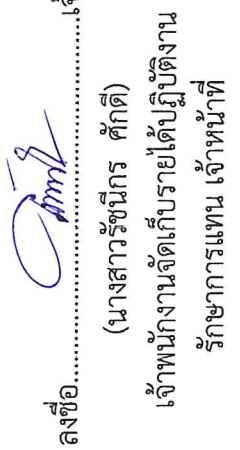 ลงชื่อ........................................เจ้
(นางสาวรัชนีกร ศักดิ์)
เจ้าพนักงานจัดเก็บรายได้ปฏิบัติงาน
รักษาการแทน เจ้าหน้าที่